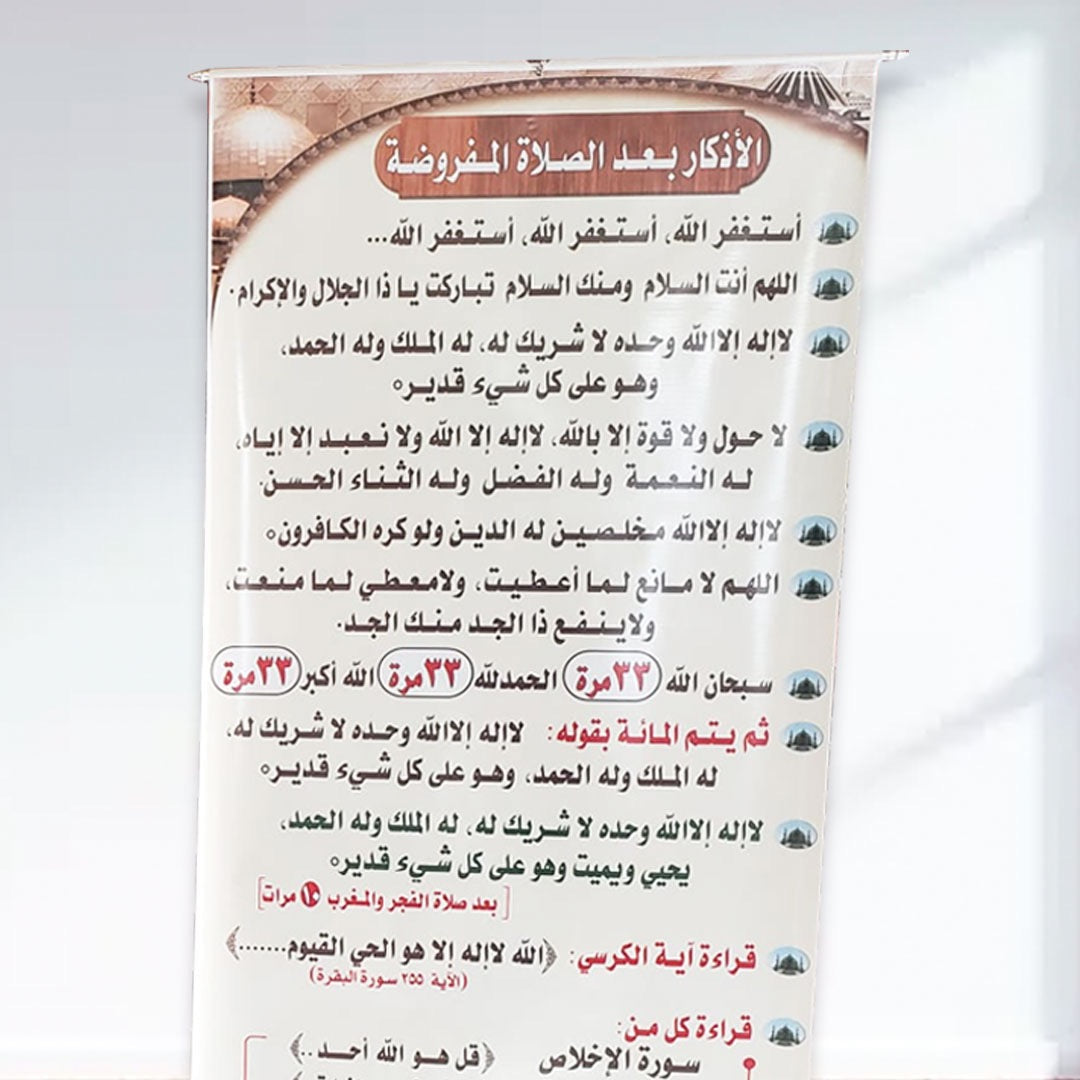 الأذكار بعد الصلاة المفروضة
أستغفر الله، أستغفر الله، أستغفر الله...
اللهم أنت السلام ومنك السلام تباركت يا ذا الجلال والإكرام.
لاإله إلاالله وحده لا شريك له، له الملك وله الحمد،
وهو على كل شيء قدير
لا حول ولا قوة إلا بالله، لاإله إلا الله ولا نعبد إلا إياه،
له النعمة وله الفضل وله الثناء الحسن.
لاإله إلاالله مخلصين له الدين ولو كره الكافرون
اللهم لا مانع لما أعطيت، ولامعطي لما منعت،
ولاينفع ذا الجد منك الجد.
سبحان الله ٣٣ مرة الحمدلله ٣٣ مرة الله أكبر ٣٣ مرة
ثم يتم المائة بقوله: لاإله إلاالله وحده لا شريك له،
له الملك وله الحمد، وهو على كل شيء قدير
لاإله إلاالله وحده لا شريك له، له الملك وله الحمد،
يحيي ويميت وهو على كل شيء قدير
[بعد صلاة الفجر والمغرب ١٠ مرات]
قراءة آية الكرسي: ﴿الله لاإله إلا هو الحي القيوم.......﴾
(الآية ٢٥٥ سورة البقرة)
قراءة كل من:
سورة الإخلاص ﴿قل هو الله أحد..﴾